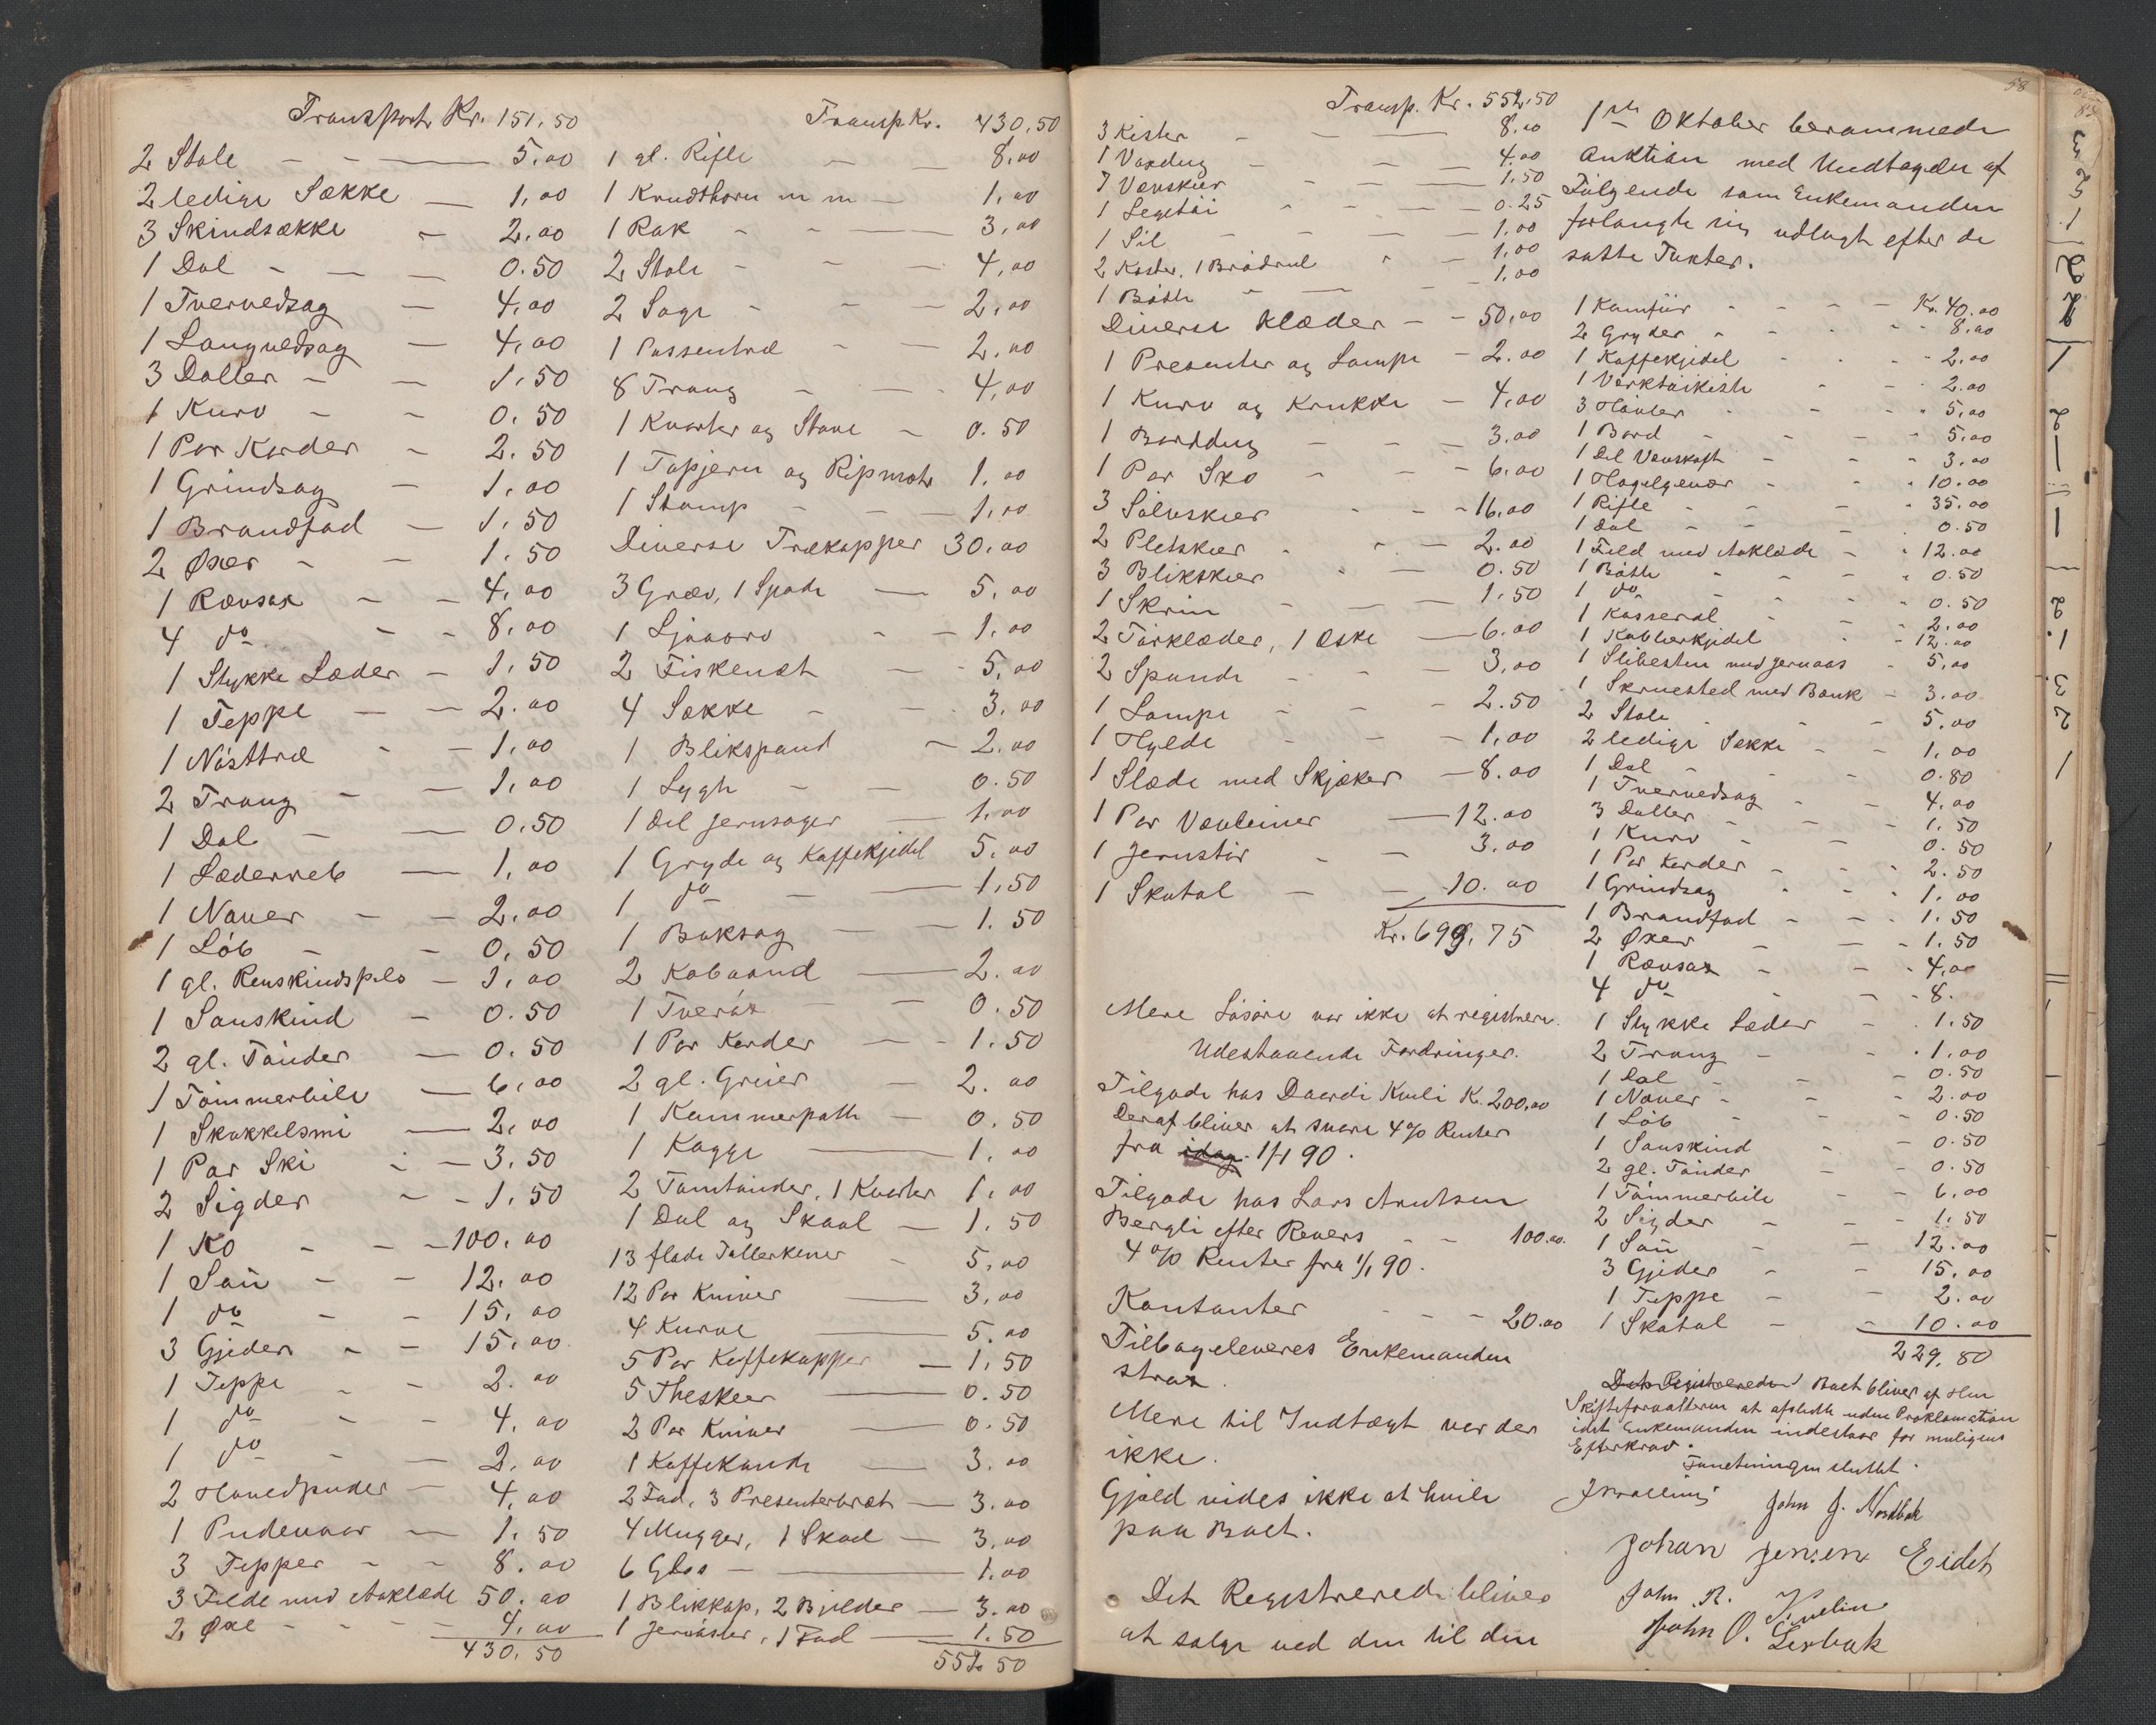 Transport Kr. 151,50
2 Stole - - 5,00
2 ledige Sække - 1,00
3 Skindsække - 2,00
1 Dal - - - 0.50
1 Tvervedsag - 4,00
1 Langvedsag - 4,00
3 Daller - - 1.50
1 Kurv - - 0.50
1 Par Karder - 2.50
1 Grindsag - 1.00
1 Brandfad - 1.50
2 Øxer - - 1.50
1 Rævsax - - 4,00
4 do - - 8,00
1 Stykke Læder - 1,50
1 Teppe - - 2.00
1 Nåsttræ - - 1,00
2 Traug - - 1,00
1 Dal - - 0.50
1 Læderreb - 1,00
1 Naver - - 2.00
1 Löb - - 0,50
1 gl. Renskindspels - 1,00
1 Sauskind - 0.50
2 gl. Tönder - 0.50
1 Tömmerbile - 6,00
1 Skakkelsmi - 2,00
1 Par Ski - 3.50
2 Sigder - - 1,50
1 Ko - - - 100.00
1 Sau - - 12.00
1 do - - 15,00
3 Gjeder - - 15,00
1 Teppe - - 2.00
1 do - - 4.00
1 do - - 2.00
2 Hovedpuder - 4.00
1 Pudevaar - 1.50
3 Tepper - - 8.00
3 Felde med Aaklæde 50.00
2 Øxe - - - 4.00
430.50
Transp. Kr. 430,50
1 gl. Rifle - - 8,00
1 Krudthorn m m - 1,00
1 Rok - - 3,00
2 Stole - - 4,00
2 Sage - - 2,00
1 Passentræ - - 2,00
8 Traug - - 4,00
1 Kvarter og Stave - 0.50
1 Tapjern og Ripmot 1.00
1 Stamp - - 1,00
Diverse Trækopper 30.00
3 Græv, 1 Spade - 5,00
1 Ljaaorv - - 1,00
2 Fiskenot - - 5,00
4 Sække - - 3.00
1 Blikspand - 2.00
1 Lygte - - 0.50
1 Del Jernsager - 1.00
1 Gryde og Kaffekjedel 5.00
1 do - - 1,50
1 Baksag - - 1.50
2 Kobaand - 2.00
1 Tveröx - - 0.50
1 Par Karder - - 1.50
2 gl. Greier - 2.00
1 Kammerpotte - 0.50
1 Kagge - 1.00
2 Tomtönder, 1 Kvarter 1,00
1 Dal og Skaal - 1.50
13 flade Tallerkener - 5,00
12 Par Kniver - 3,00
4 Kurve - 5.00
5 Par Kaffekopper - 1,50
5 Theskeer - 0.50
2 Par Kniver - 0.50
1 Kaffekande - 3.00
2 Fad, 3 Presenterbræt - 3.00
4 Mugger, 1 Skaal - 3,00
6 Glas - 1.00
1 Blikkop, 2 Bilder - 3.00
1 , 1 Fad - 1.50
552.50
58
Transp. Kr. 552,50
3 Kister - - 8,00
1 Voxdug - - - 4.00
7 Vævskeer - - 1,50
1 Legetöi - - - 0.25
1 Sil - - - 1,00
2 Koster, 1 Brödrul - - 1,00
1 Bötte - - - 1,00
Diverse Klæder - - 50,00
1 Presenter og Lampe - 2.00
1 Kurv og Krukke - 4,00
1 Borddug - - - 3,00
1 Par Sko - - 6,00
3 Sölvskeer - - 16,00
2 Pletskeer - - 2.00
3 Blikskeer - - 0.50
1 Skrin - - - 1.50
2 Törklæder, 1 Æske - 6.00
2 Spande - - - 3,00
1 Lampe - - - 2.50
1 Hylde - - - 1,00
1 Slæde med Skjæker - 8.00
1 Par Vævleiner - 12.00
1 Jernstör - - 3.00
1 Skatol - - 10.00
Kr. 699.75
Mere Lösöre var ikke at registrere.
Udestaaende Fordringer.
Tilgode hos Kr. 200,00
Deraf bliver at svare 4% Renter
fra idag 1/1 90.
Tilgode hos Lars Arntsen
Bergli efter Revers - - 100.00.
4% Renter fra 1/1 90.
Kontanter - - - 20.00
Tilbageleveres Enkemanden
strax.
Mere til Indtægt var der
ikke.
Gjæld vides ikke at hvile
paa Boet.
Det Registrerede bliver
at sælge ved den til den
1ste Oktober berammede
Auktion med Undtagelse af
Fölgende som Enkemanden
forlangte sig udlagt efter de
satte Taxter.
1 Komfür - - - - Kr. 40.00
2 Gryder - - - - 8.00
1 Kaffekjedel - - - 2.00
1 Værktöikiste - - 2.00
3 Hövler - - - 5,00
1 Bord - - - 5.00
1 Del Vævskaft - - - 3.00
1 Haglgevær - - - 10.00
1 Rifle - - - 35.00
1 Dal - - - 0.50
1 Feld med Aaklæde - - 12.00
1 Bötte - - - 0.50
1 do - - - 0.50
1 Kasserol - - - 2.00
1 Kobberkjedel - - 12.00
1 Slibesten med jernaas - 5,00
1 Skruested med Bænk - 3.00
2 Stole - - - 5.00
2 ledige Sække - - 1,00
1 Dal - - - 0.80
1 Tvervedsag - - 4.00
3 Daller - - - 1.50
1 Kurv - - - 0.50
1 Par Karder - - - 2.50
1 Grindsag - - - 1.00
1 Brandfad - - - 1.50
2 Øxer - - - 1.50
1 Rævsax - - - 4,00
4 do - - 8.
1 Stykke Læder - - 1.50
2 Traug - - - 1.00
1 Dal - - - 0.50
1 Naver - - - 2.00
1 Löb - - - 0.50
1 Sauskind - - 0.50
2 gl. Tönder - - 0.50
1 Tömmerbile - - 6,00
2 Sigder - - - 1.50
1 Sau - - 12.00
3 Gjeder - - 15,00
1 Teppe - - 2.00
1 Skatol - - 10.00
229,80
Det Registrerede Boet bliver af Herr
Skifteforvalteren at afslutte uden Proklamation
idet Enkemanden indestaar for muligens
Efterkrav.
Forretningen sluttet.
John J. Nordbak
Johan Jensen Eidet
John R.
John O. Lerbak